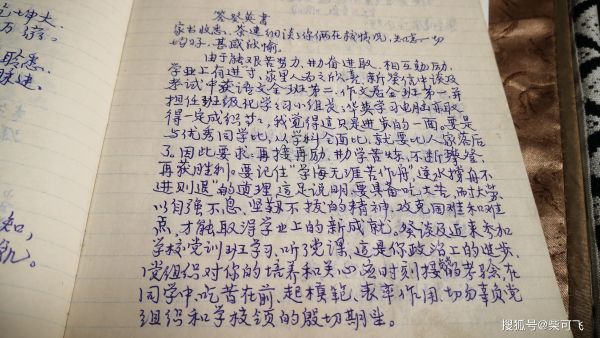 答葵英書
家书收悉，葵速细谈了你俩在校情况，知悉一切
均好，甚感欣愉。
由于能艰苦努力，勤奋进取，相互勉励，
学业上有进寸，家里人为之欣喜，新葵信中谈及
考试中获语文全班第二，作文为全班第一，并
担任班级化学习小组长；华英学习电脑亦取
得一定成积廿二，我觉得这只是进步的一面。要是
与优秀同学比，从学科全面比，就要比人家落后
了。因此要求：再接再励，勤学苦练，不断攀登，
再获胜利。要记住"学海无涯苦作舟"，逆水撑舟不
进则退"的道理，这是说明，要具备吃大苦，耐大劳，
以自强不息，坚韧不拔的精神，攻克困难和难
点，才能取得学业上的新成就。葵谈及近来参加
学校党训班学习，听了党课，这是你政治上的进步，
党组织对你的培养和关心，应时刻接受的考验，在
同学中，吃苦在前，起模范，表率作用，切勿辜负党
组织和学校领的殷切期望。
搜狐号@柴可飞